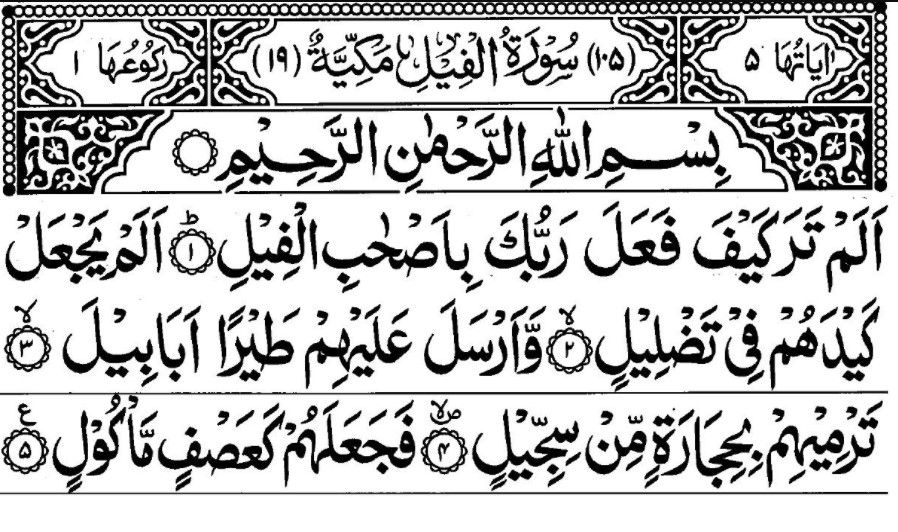 اٰيَاتُهَا ٥ (١٠٥) سُوْرَةُ الْفِيْلِ مَكِّيَّةٌ (١٩) رُكُوْعُهَا ١
بِسْمِ اللّٰهِ الرَّحْمٰنِ الرَّحِيْمِ ۝
اَلَمْ تَرَ كَيْفَ فَعَلَ رَبُّكَ بِاَصْحٰبِ الْفِيْلِ ؕ﴿١﴾ اَلَمْ يَجْعَلْ
كَيْدَهُمْ فِيْ تَضْلِيْلٍ ۙ﴿٢﴾ وَّاَرْسَلَ عَلَيْهِمْ طَيْرًا اَبَابِيْلَ ۙ﴿٣﴾
تَرْمِيْهِمْ بِحِجَارَةٍ مِّنْ سِجِّيْلٍ ۪ۙ﴿٤﴾ فَجَعَلَهُمْ كَعَصْفٍ مَّاْكُوْلٍ ﴿٥﴾ ع